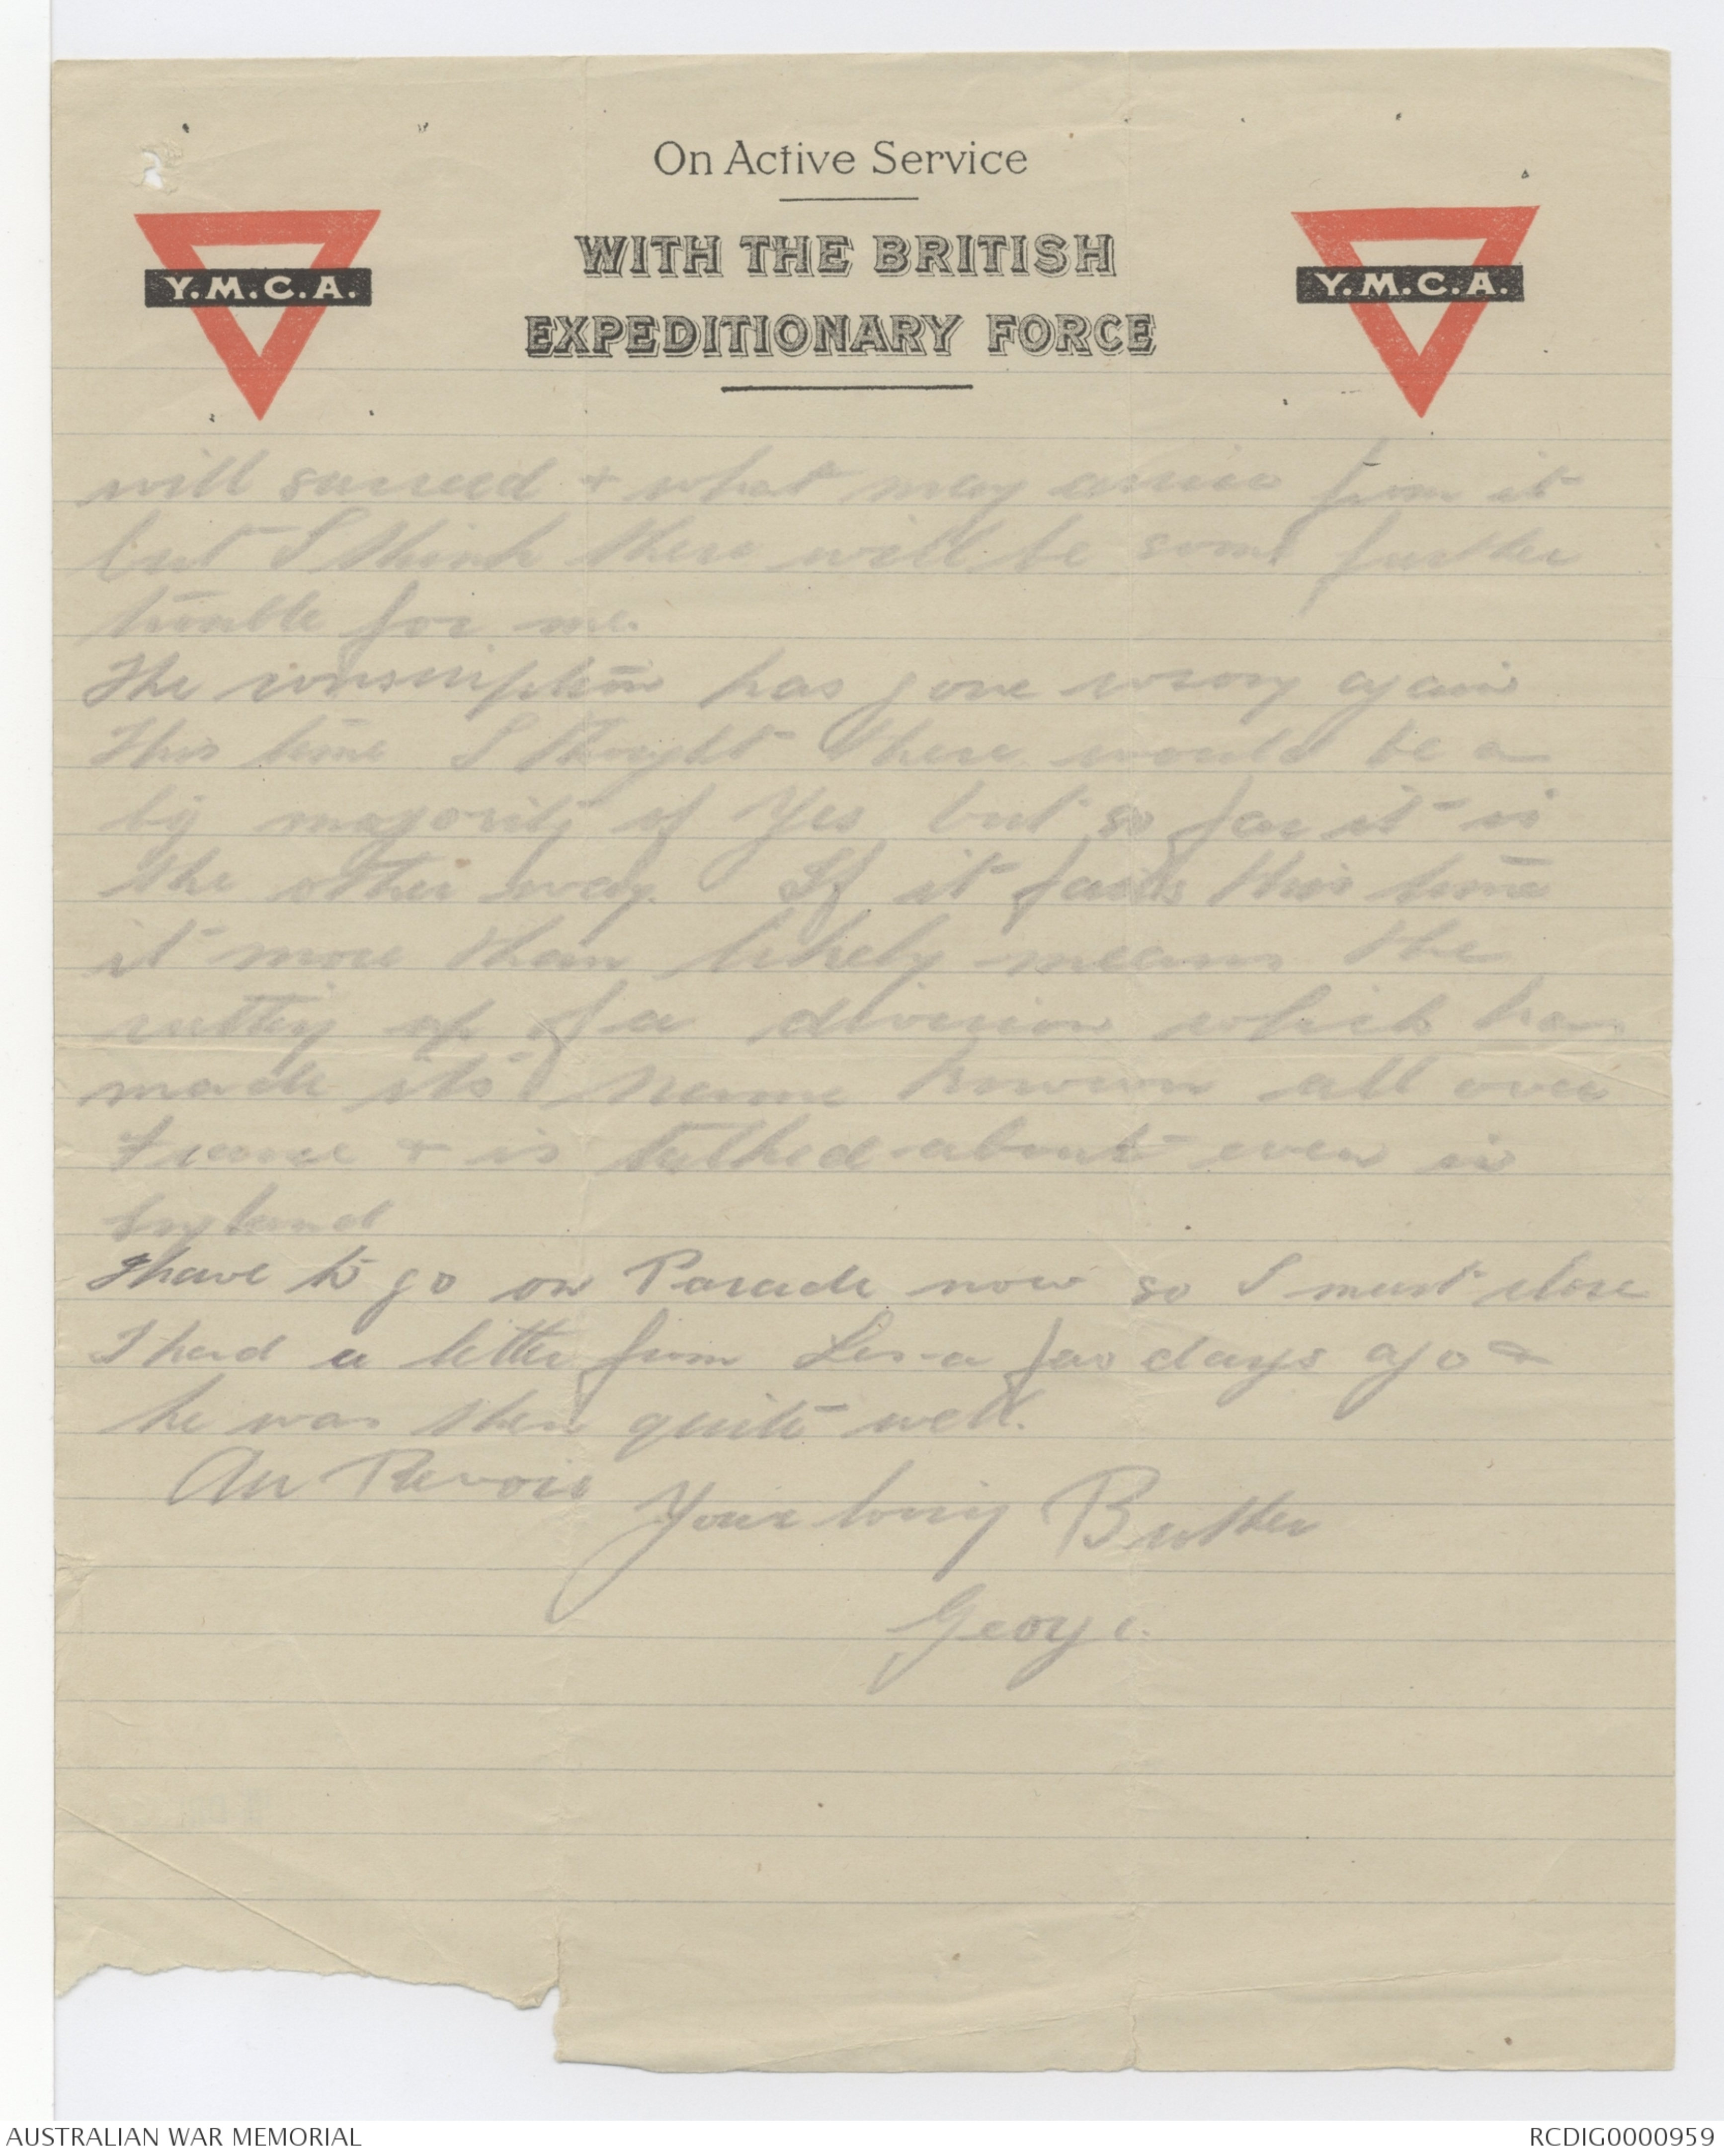 On Active Service
WITH THE BRITISH
EXPEDITIONARY FORCE
Y.M.C.A.
Y.M.C.A.
will succeed + what may arrise from it
but I think there will be some further
trouble for me.
The conscription has gone wrong again
This time I thought there would be a
big majority of Yes but so far it is
the other way. If it fails this time
it more than likely means the
cutting up of a division which has
made its name known all over
France + is talked about even in
England
I have to go on Parade now so I must close
I had a letter from Les a few days ago +
he was then quite well.
Au Revoir
Your loving Brother
George.
AUSTRALIAN WAR MEMORIAL
RCDIG0000959